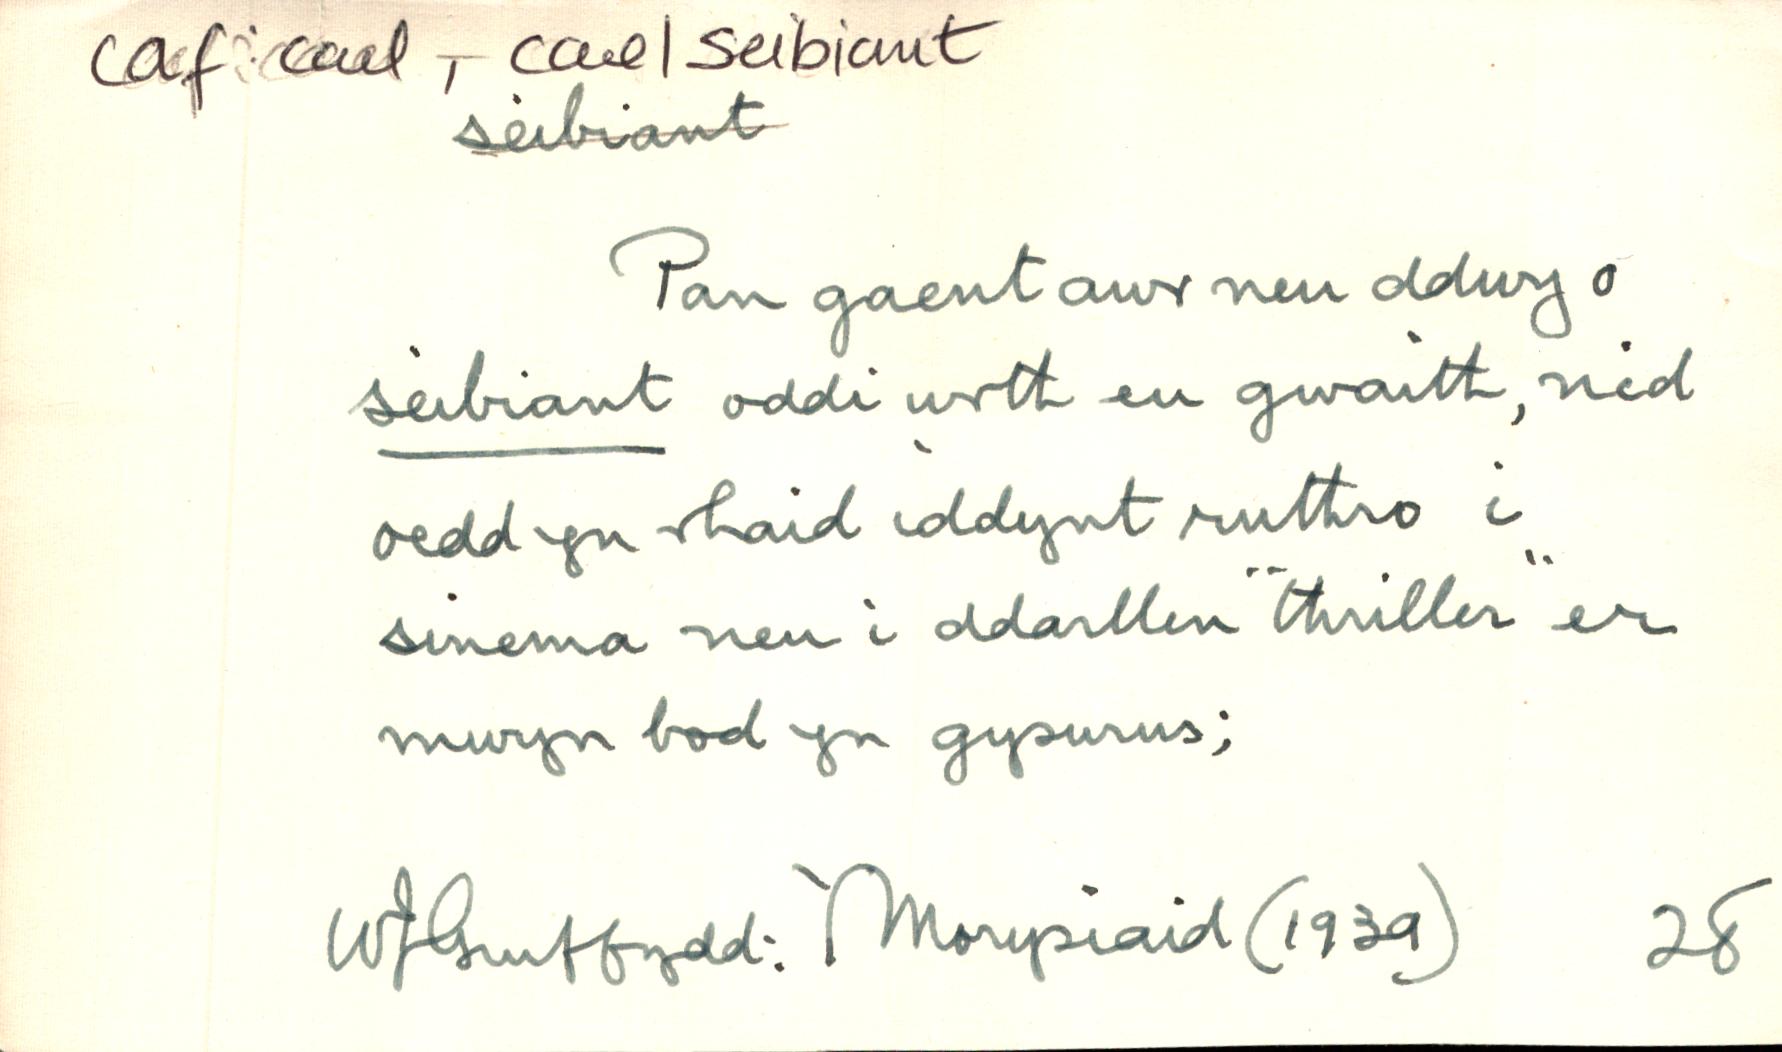 caf: cael, - cael seibiant
seibiant
Pan gaent awr neu ddwy o
seibiant oddi wrth eu gwaith, nid
oedd yn rhaid iddynt ruthro i
sinema neu i ddarllen "thriller" er
mwyn bod yn gysurus;
WJ Gruffydd: Morysiaid (1939) 28